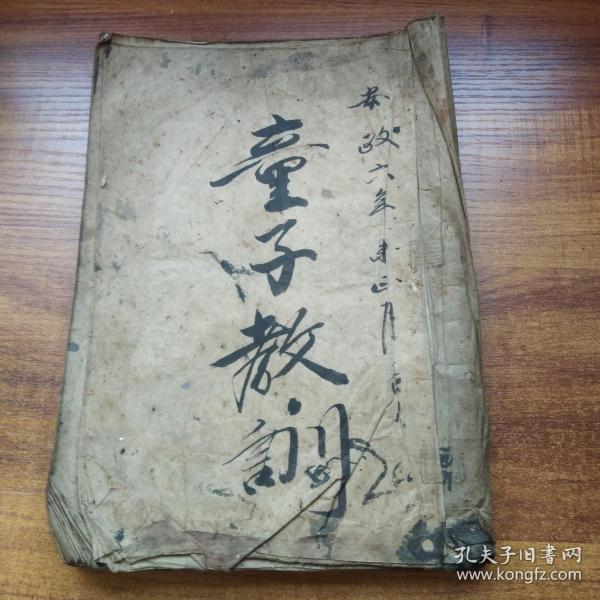 安政六年未正月吉日
童子教訓
孔夫子旧书网
www.kongfz.com